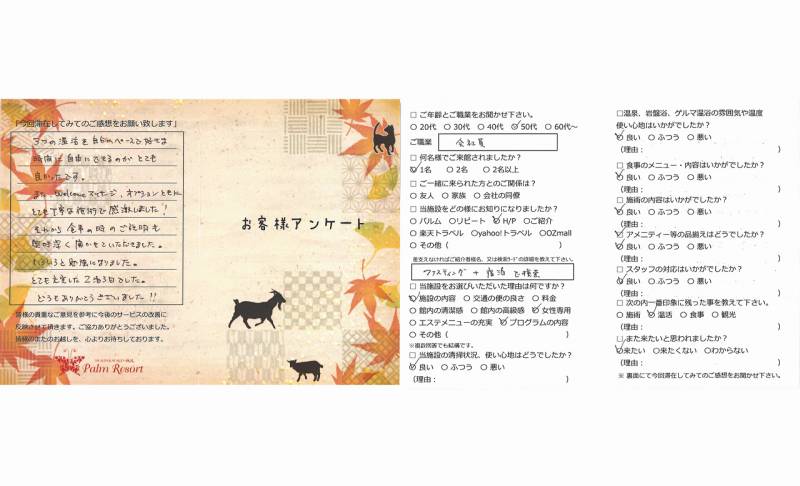 「今回滞在してみてのご感想をお願い致します」
3つの温活を自分のペースで好きな
時間に自由にできるのがとても
良かったです。
また、Welcomeマッサージ、オプションともに
とても丁寧な施術で感激しました！
それから食事の時のご説明も
興味深く聞かせていただきました。
いろいろと勉強になりました。
とても充実した2泊3日でした。
どうもありがとうございました!!
皆様の貴重なご意見を参考に今後のサービスの改善に
反映させて頂きます。ご協力ありがとうございました。
皆様のまたのお越しを、心よりお待ちしております。
Palm Resort
お客様アンケート
□ ご年齢とご職業をお聞かせ下さい。
○ 20代 ○ 30代 ○ 40代 ○ 50代 ○ 60代～
ご職業 会社員
□ 何名様でご来館されましたか？
○ 1名 ○ 2名 ○ 2名以上
□ ご一緒に来られた方とのご関係は？
○ 友人 ○ 家族 ○ 会社の同僚
□ 当施設をどの様にお知りになりましたか？
○ パルム ○リピート ○ H/P ○ご紹介
○ 楽天トラベル ○yahoo!トラベル ○OZmall
○ その他（ ）
※差支えなければご紹介者様名、又は検索ワードの詳細を教えて下さい。
ファスティング + 温活 で検索
□ 当施設をお選びいただいた理由は何ですか？
○ 施設の内容 ○ 交通の便の良さ ○ 料金
○ 館内の清潔感 ○ 館内の高級感 ○ 女性専用
○ エステメニューの充実 ○ プログラムの内容
○ その他（ ）
※複数回答でも結構です。
□ 当施設の清掃状況、使い心地はどうでしたか？
○ 良い ○ ふつう ○ 悪い
（理由： ）
□温泉、岩盤浴、ゲルマ温浴の雰囲気や温度
使い心地はいかがでしたか？
○ 良い ○ ふつう ○ 悪い
（理由： ）
□ 食事のメニュー・内容はいかがでしたか？
○ 良い ○ ふつう ○ 悪い
（理由： ）
□ 施術の内容はいかがでしたか？
○ 良い ○ ふつう ○ 悪い
□ アメニティー等の品揃えはどうでしたか？
○ 良い ○ ふつう ○ 悪い
（理由： ）
□ スタッフの対応はいかがでしたか？
○ 良い ○ ふつう ○ 悪い
□ 次の内一番印象に残った事を教えて下さい。
○ 施術 ○ 温活 ○ 食事 ○ 観光
□ また来たいと思われましたか？
○来たい ○来たくない ○わからない
（理由： ）
※ 裏面にて今回滞在してみてのご感想をお聞かせ下さい。